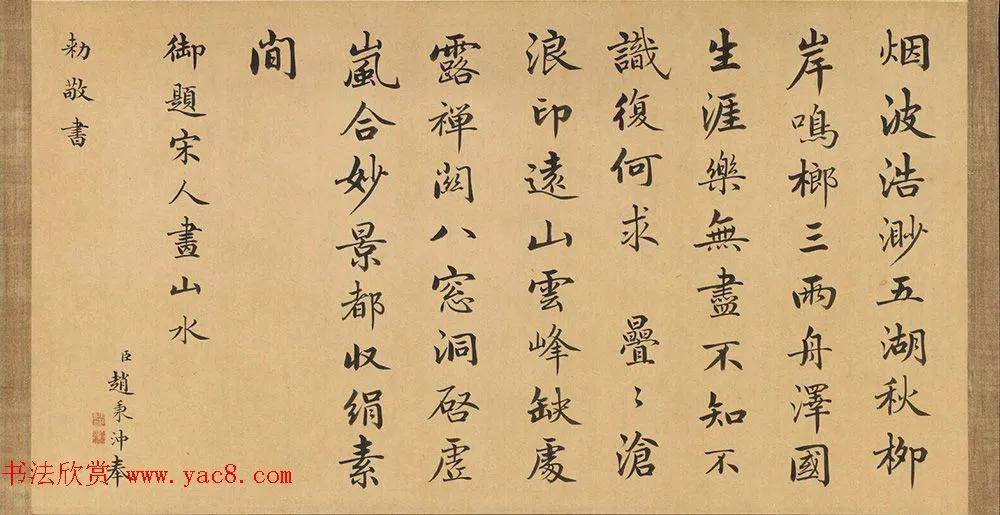 烟波浩渺五湖秋柳
岸鳴榔三兩舟澤國
生涯樂無盡不知不
識復何求 疊〻滄
浪印遠山雲峰缺處
露禅関八窓洞啓虛
嵐合妙景都收絹素
間
御題宋人畫山水
臣趙秉沖奉
勅敬書
书法欣赏www.yac8.com